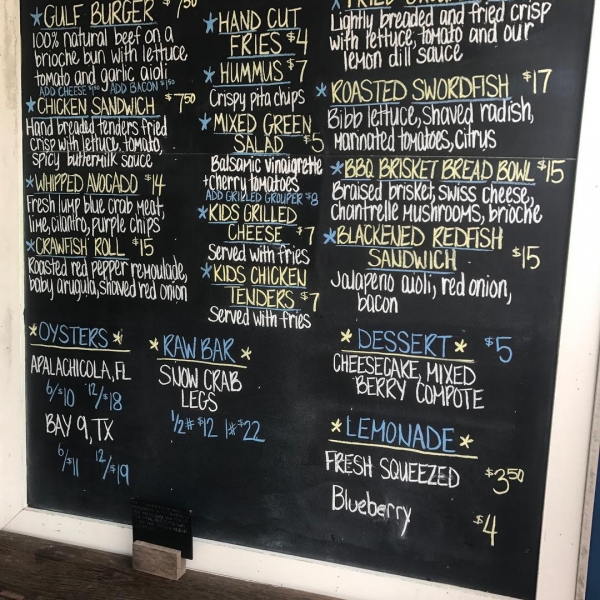 GULF BURGER $7.50
100% natural beef on a
brioche bun with lettuce
tomato and garlic aioli
ADD CHEESE $1.50 ADD BACON $1.50
CHICKEN SANDWICH $7.50
Hand breaded tenders fried
crisp with lettuce, tomato,
spicy buttermilk sauce
WHIPPED AVOCADO $14
Fresh lump blue crab meat,
lime, cilantro, purple chips
CRAWFISH ROLL $15
Roasted red pepper remoulade,
baby arugula, shaved red onion
HAND CUT
FRIES $4
HUMMUS $7
Crispy pita chips
MIXED GREEN
SALAD $5
Balsamic vinaigrette
+cherry tomatoes
ADD GRILLED GROUPER $8
KIDS GRILLED
CHEESE $7
Served with fries
KIDS CHICKEN
TENDERS $7
Served with fries
Lightly breaded and fried crisp
with lettuce, tomato and our
lemon dill sauce
ROASTED SWORDFISH $17
Bibb lettuce, shaved radish,
marinated tomatoes, citrus
BBQ BRISKET BREAD BOWL $15
Braised brisket, swiss cheese,
chantrelle mushrooms, brioche
BLACKENED REDFISH
SANDWICH $15
Jalapeno aioli, red onion,
bacon
OYSTERS
APALACHICOLA, FL
6/$10 12/$18
BAY 9, TX
6/$11 12/$19
RAW BAR
SNOW CRAB
LEGS
1/2# $12 1# $22
DESSERT $5
CHEESECAKE, MIXED
BERRY COMPOTE
LEMONADE
FRESH SQUEEZED $3.50
Blueberry $4